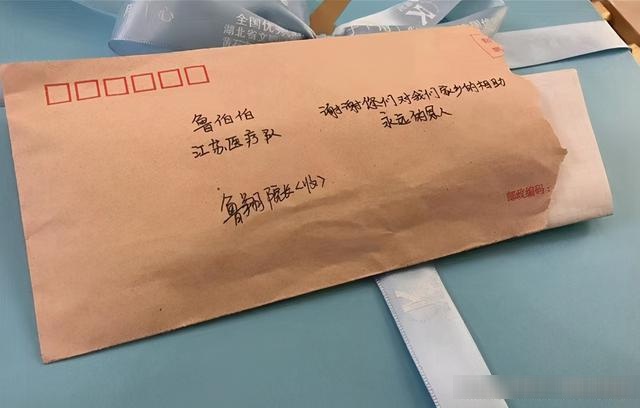 全国优
湖北省文
鲁伯伯
江苏医疗队
谢谢您们对我们家乡的相助
永远的恩人
鲁翔院长(收)
邮政编码: